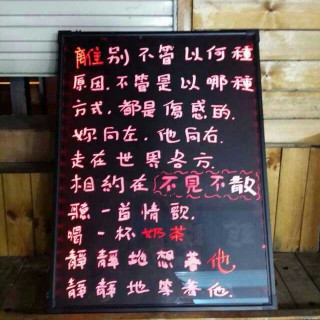 離別不管以何種
原因.不管是以哪種
方式,都是傷感的.
妳向左,他向右.
走在世界各方.
相約在不見不散
聽一首情歌.
喝一杯奶茶
靜靜地想著他
靜靜地等著他.